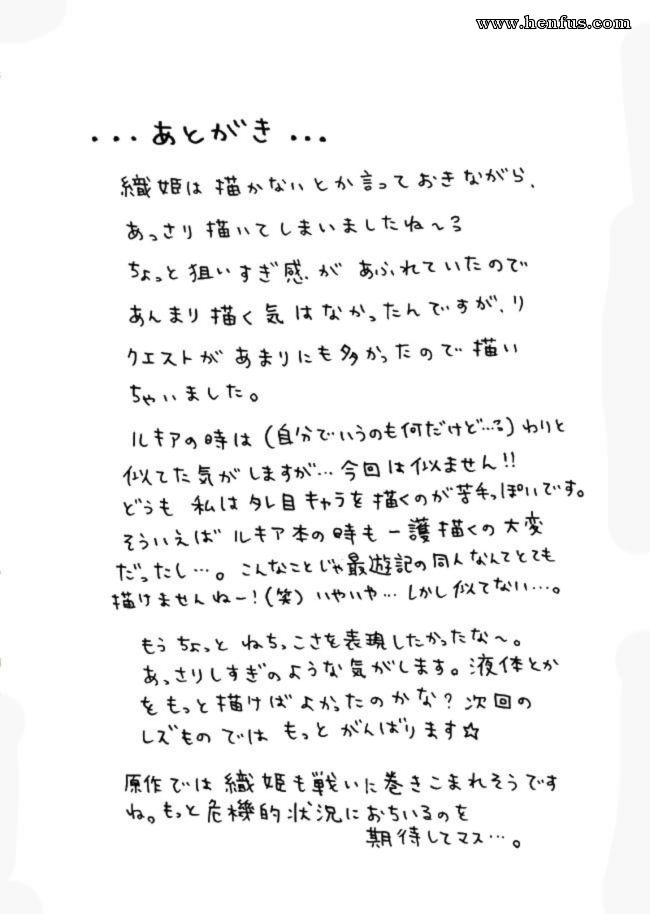 www.henfus.com
...あとがき...
織姫は描かないとか言っておきながら、
あっさり描いてしまいましたね〜る
ちょっと狙いすぎ感があふれていたので
あんまり描く気はなかったんですが、リ
クエストがあまりにも多かったので描い
ちゃいました。
ルキアの時は(自分でいうのも何だけど…る)わりと
似てた気がしますが…今回は似ません!!
どうも私はタレ目キャラを描くのが苦手っぽいです。
そういえばルキア本の時も一護描くの大変
だったし…。こんなことじゃ最遊記の同人なんてとても
描けませんねー!(笑)いやいや…しかし似てない…。
もうちょっとねちっこさを表現したかったな〜。
あっさりしすぎのような気がします。液体とか
をもっと描けばよかったのかな?次回の
レズものではもっとがんばります☆
原作では織姫も戦いに巻きこまれそうです
ね。もっと危機的状況におちいるのを
期待してマス…。